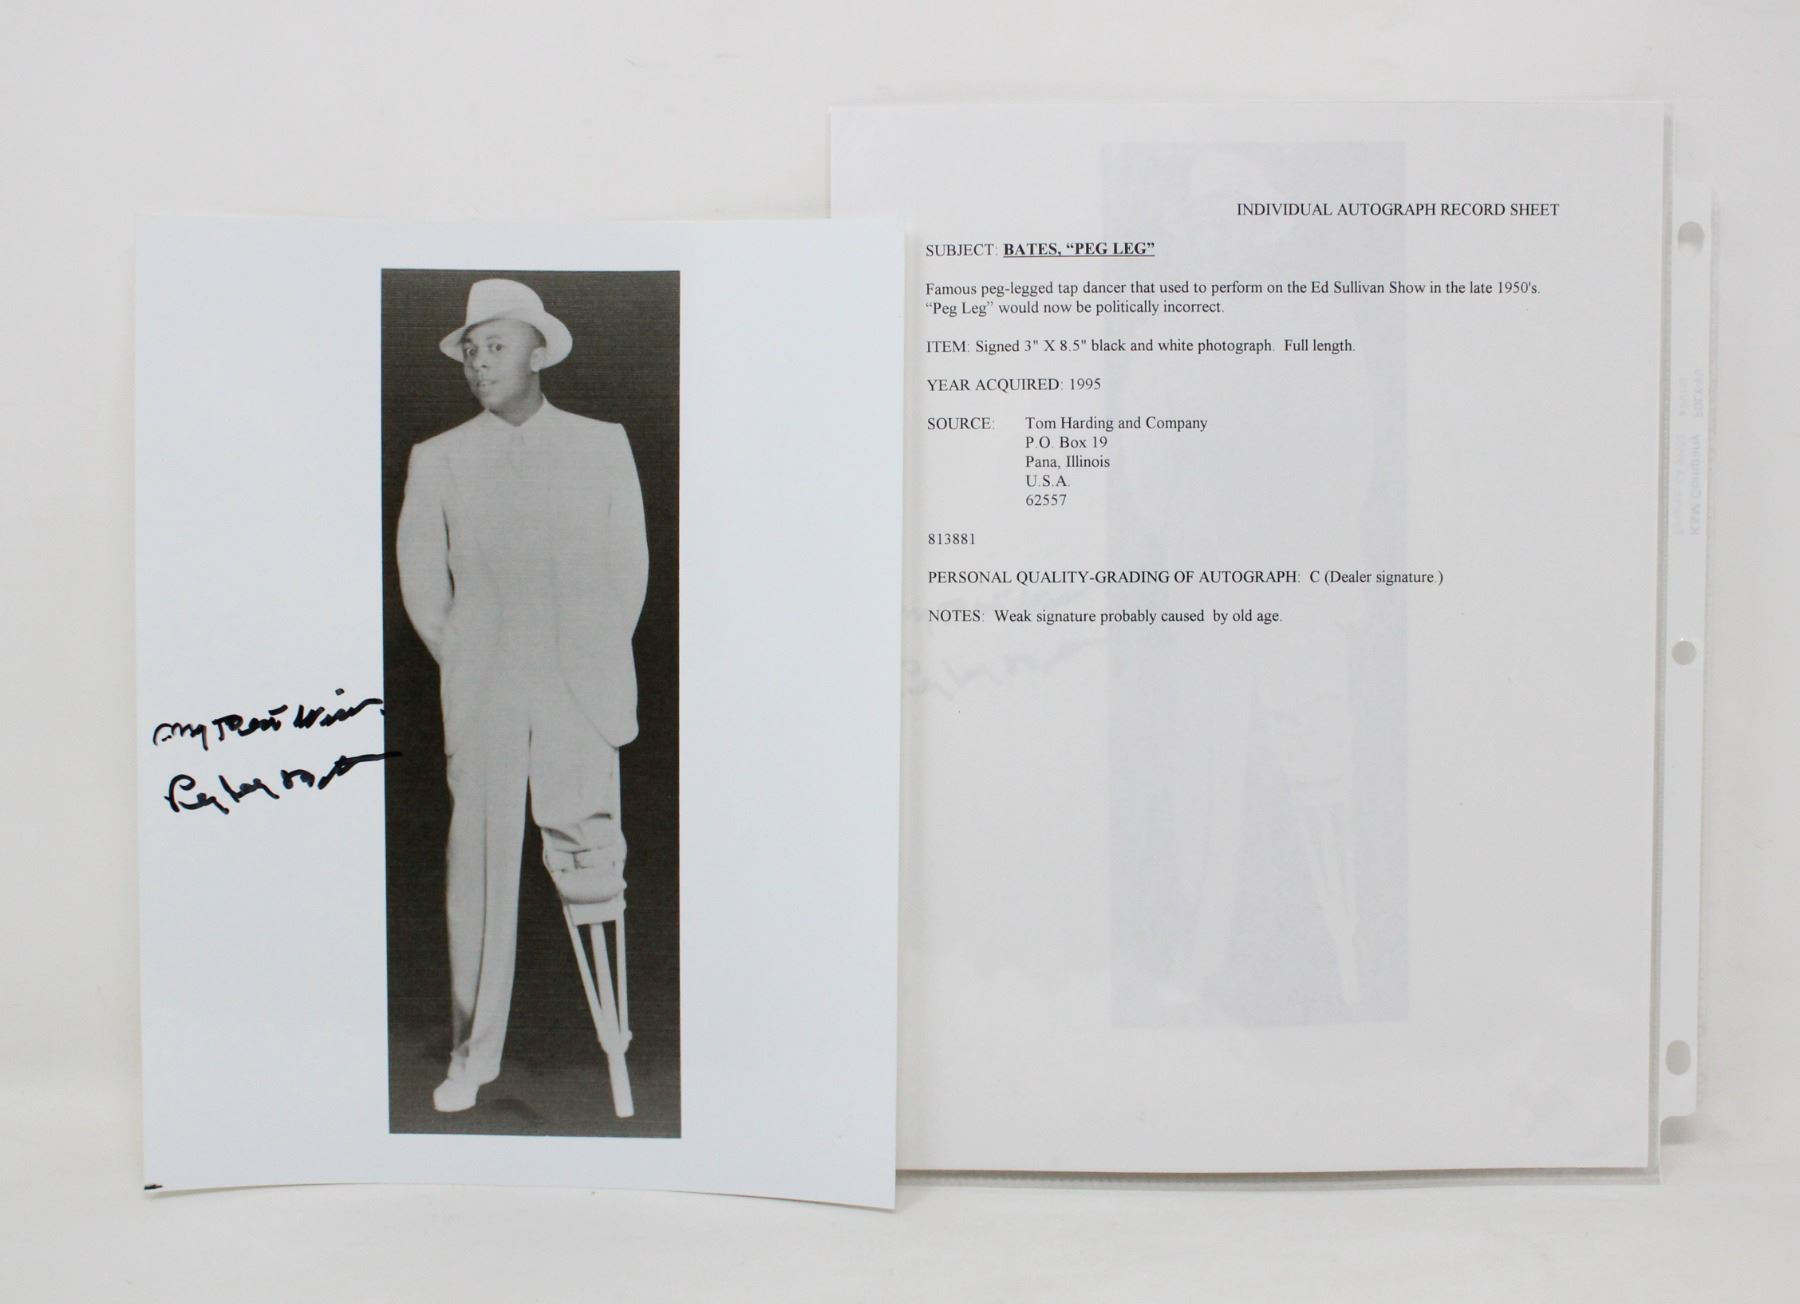 My Best Wishes
Peg Leg Bates
INDIVIDUAL AUTOGRAPH RECORD SHEET
SUBJECT: BATES, “PEG LEG”
Famous peg-legged tap dancer that used to perform on the Ed Sullivan Show in the late 1950's.
“Peg Leg” would now be politically incorrect.
ITEM: Signed 3" X 8.5" black and white photograph. Full length.
YEAR ACQUIRED: 1995
SOURCE: Tom Harding and Company
P.O. Box 19
Pana, Illinois
U.S.A.
62557
813881
PERSONAL QUALITY-GRADING OF AUTOGRAPH: C (Dealer signature.)
NOTES: Weak signature probably caused by old age.